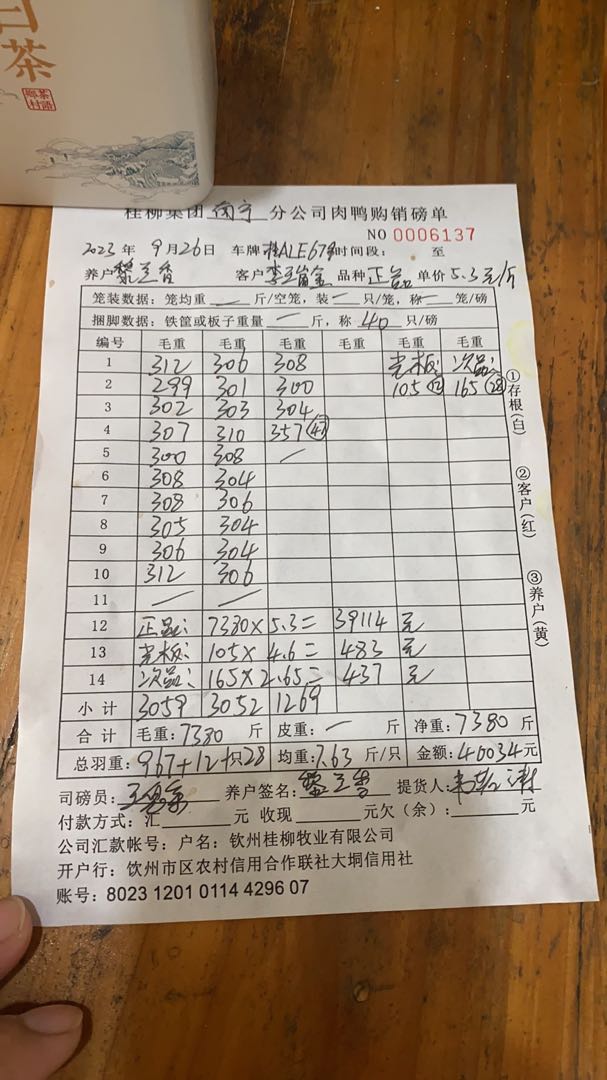 白
茶
茶語
鄉村
桂柳集团南宁分公司肉鸭购销磅单
NO 0006137
2023年9月26日 车牌桂ALE679时间段: 至
养户黎兰香 客户 品种正品 单价5.3元/斤
笼装数据: 笼均重 — 斤/空笼, 装 — 只/笼, 称 — 笼/磅
捆脚数据: 铁筐或板子重量 — 斤, 称 40 只/磅
编号 毛重 毛重 毛重 毛重 毛重 毛重
1 312 306 308 光板: 次品:
2 299 301 300 105(12) 165(28)
3 302 303 304
4 307 310 357(47)
5 300 308 —
6 308 304
7 308 306
8 305 304
9 306 304
10 312 306
11 — —
12 正品: 7380×5.3= 39114 元
13 光板: 105×4.6= 483 元
14 次品: 165×2.65= 437 元
小计 3059 3052 1269
合计 毛重: 7380 斤 皮重: — 斤 净重: 7380 斤
总羽重: 967+12+只28 均重: 7.63 斤/只 金额: 40034元
司磅员: 养户签名: 黎兰香 提货人:
付款方式: 汇 元 收现 元欠(余): 元
公司汇款帐号: 户名: 钦州桂柳牧业有限公司
开户行: 钦州市区农村信用合作联社大垌信用社
账号: 8023 1201 0114 4296 07
①存根(白)
②客户(红)
③养户(黄)